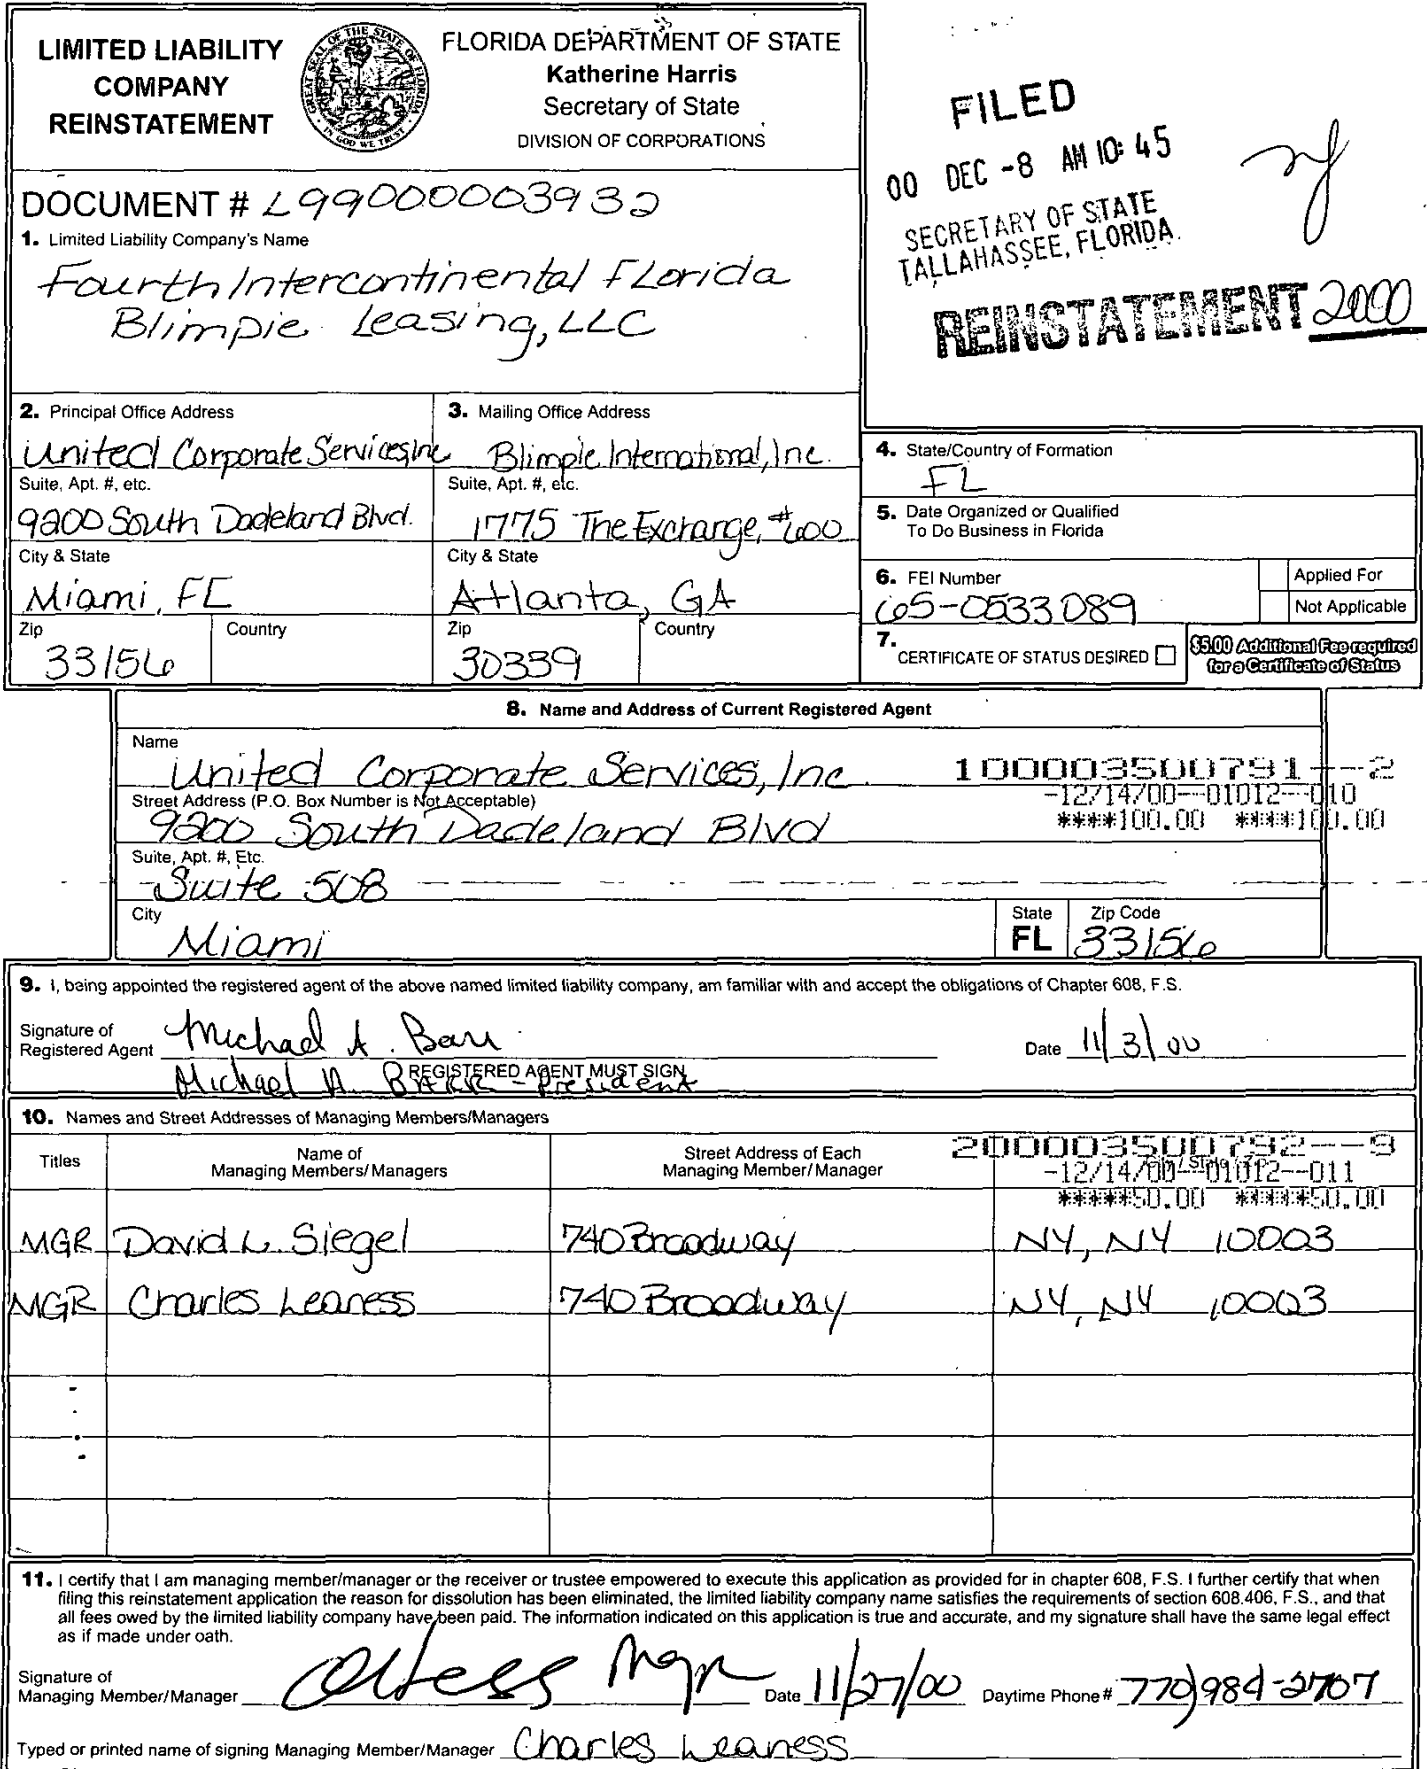 LIMITED LIABILITY
COMPANY
REINSTATEMENT
GREAT SEAL OF THE STATE OF FLORIDA
IN GOD WE TRUST
FLORIDA DEPARTMENT OF STATE
Katherine Harris
Secretary of State
DIVISION OF CORPORATIONS
FILED
00 DEC -8 AM 10:45
SECRETARY OF STATE
TALLAHASSEE, FLORIDA
REINSTATEMENT 2000
DOCUMENT # L99000003932
1. Limited Liability Company's Name
Fourth Intercontinental Florida
Blimpie Leasing, LLC
2. Principal Office Address
United Corporate Services, Inc
Suite, Apt. #, etc.
9200 South Dadeland Blvd.
City & State
Miami, FL
Zip
33156
Country
3. Mailing Office Address
Blimpie International, Inc.
Suite, Apt. #, etc.
1775 The Exchange, #600
City & State
Atlanta, GA
Zip
30339
Country
4. State/Country of Formation
FL
5. Date Organized or Qualified
To Do Business in Florida
6. FEI Number
65-0533089
Applied For
Not Applicable
7. CERTIFICATE OF STATUS DESIRED
$5.00 Additional Fee required
for a Certificate of Status
8. Name and Address of Current Registered Agent
Name
United Corporate Services, Inc.
100003500791--2
-12/14/00--01012--010
****100.00 ****100.00
Street Address (P.O. Box Number is Not Acceptable)
9200 South Dadeland Blvd
Suite, Apt. #, Etc.
Suite 508
City
Miami
State
FL
Zip Code
33156
9. I, being appointed the registered agent of the above named limited liability company, am familiar with and accept the obligations of Chapter 608, F.S.
Signature of
Registered Agent
Michael A. Barr
Date 11/3/00
REGISTERED AGENT MUST SIGN
Michael A. Barr - President
10. Names and Street Addresses of Managing Members/Managers
Titles
Name of
Managing Members/Managers
Street Address of Each
Managing Member/Manager
200003500792--9
-12/14/00--01012--011
*****50.00 *****50.00
MGR David L. Siegel 740 Broadway NY, NY 10003
MGR Charles Leaness 740 Broadway NY, NY 10003
11. I certify that I am managing member/manager or the receiver or trustee empowered to execute this application as provided for in chapter 608, F.S. I further certify that when
filing this reinstatement application the reason for dissolution has been eliminated, the limited liability company name satisfies the requirements of section 608.406, F.S., and that
all fees owed by the limited liability company have been paid. The information indicated on this application is true and accurate, and my signature shall have the same legal effect
as if made under oath.
Signature of
Managing Member/Manager
Mgr
Date 11/27/00
Daytime Phone # 770)984-2707
Typed or printed name of signing Managing Member/Manager Charles Leaness